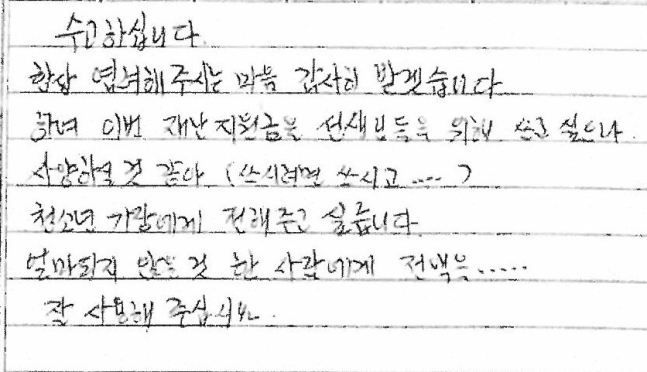 수고하십니다.
항상 염려해 주시는 마음 감사히 받겠습니다
하여 이번 재난 지원금을 선생님들을 위해 쓰고 싶으나
사양하실 것 같아 (쓰시려면 쓰시고 ....)
청소년 가장에게 전해주고 싶습니다.
얼마되지 않는 것 한 사람에게 전액을......
잘 사용해 주십시요.